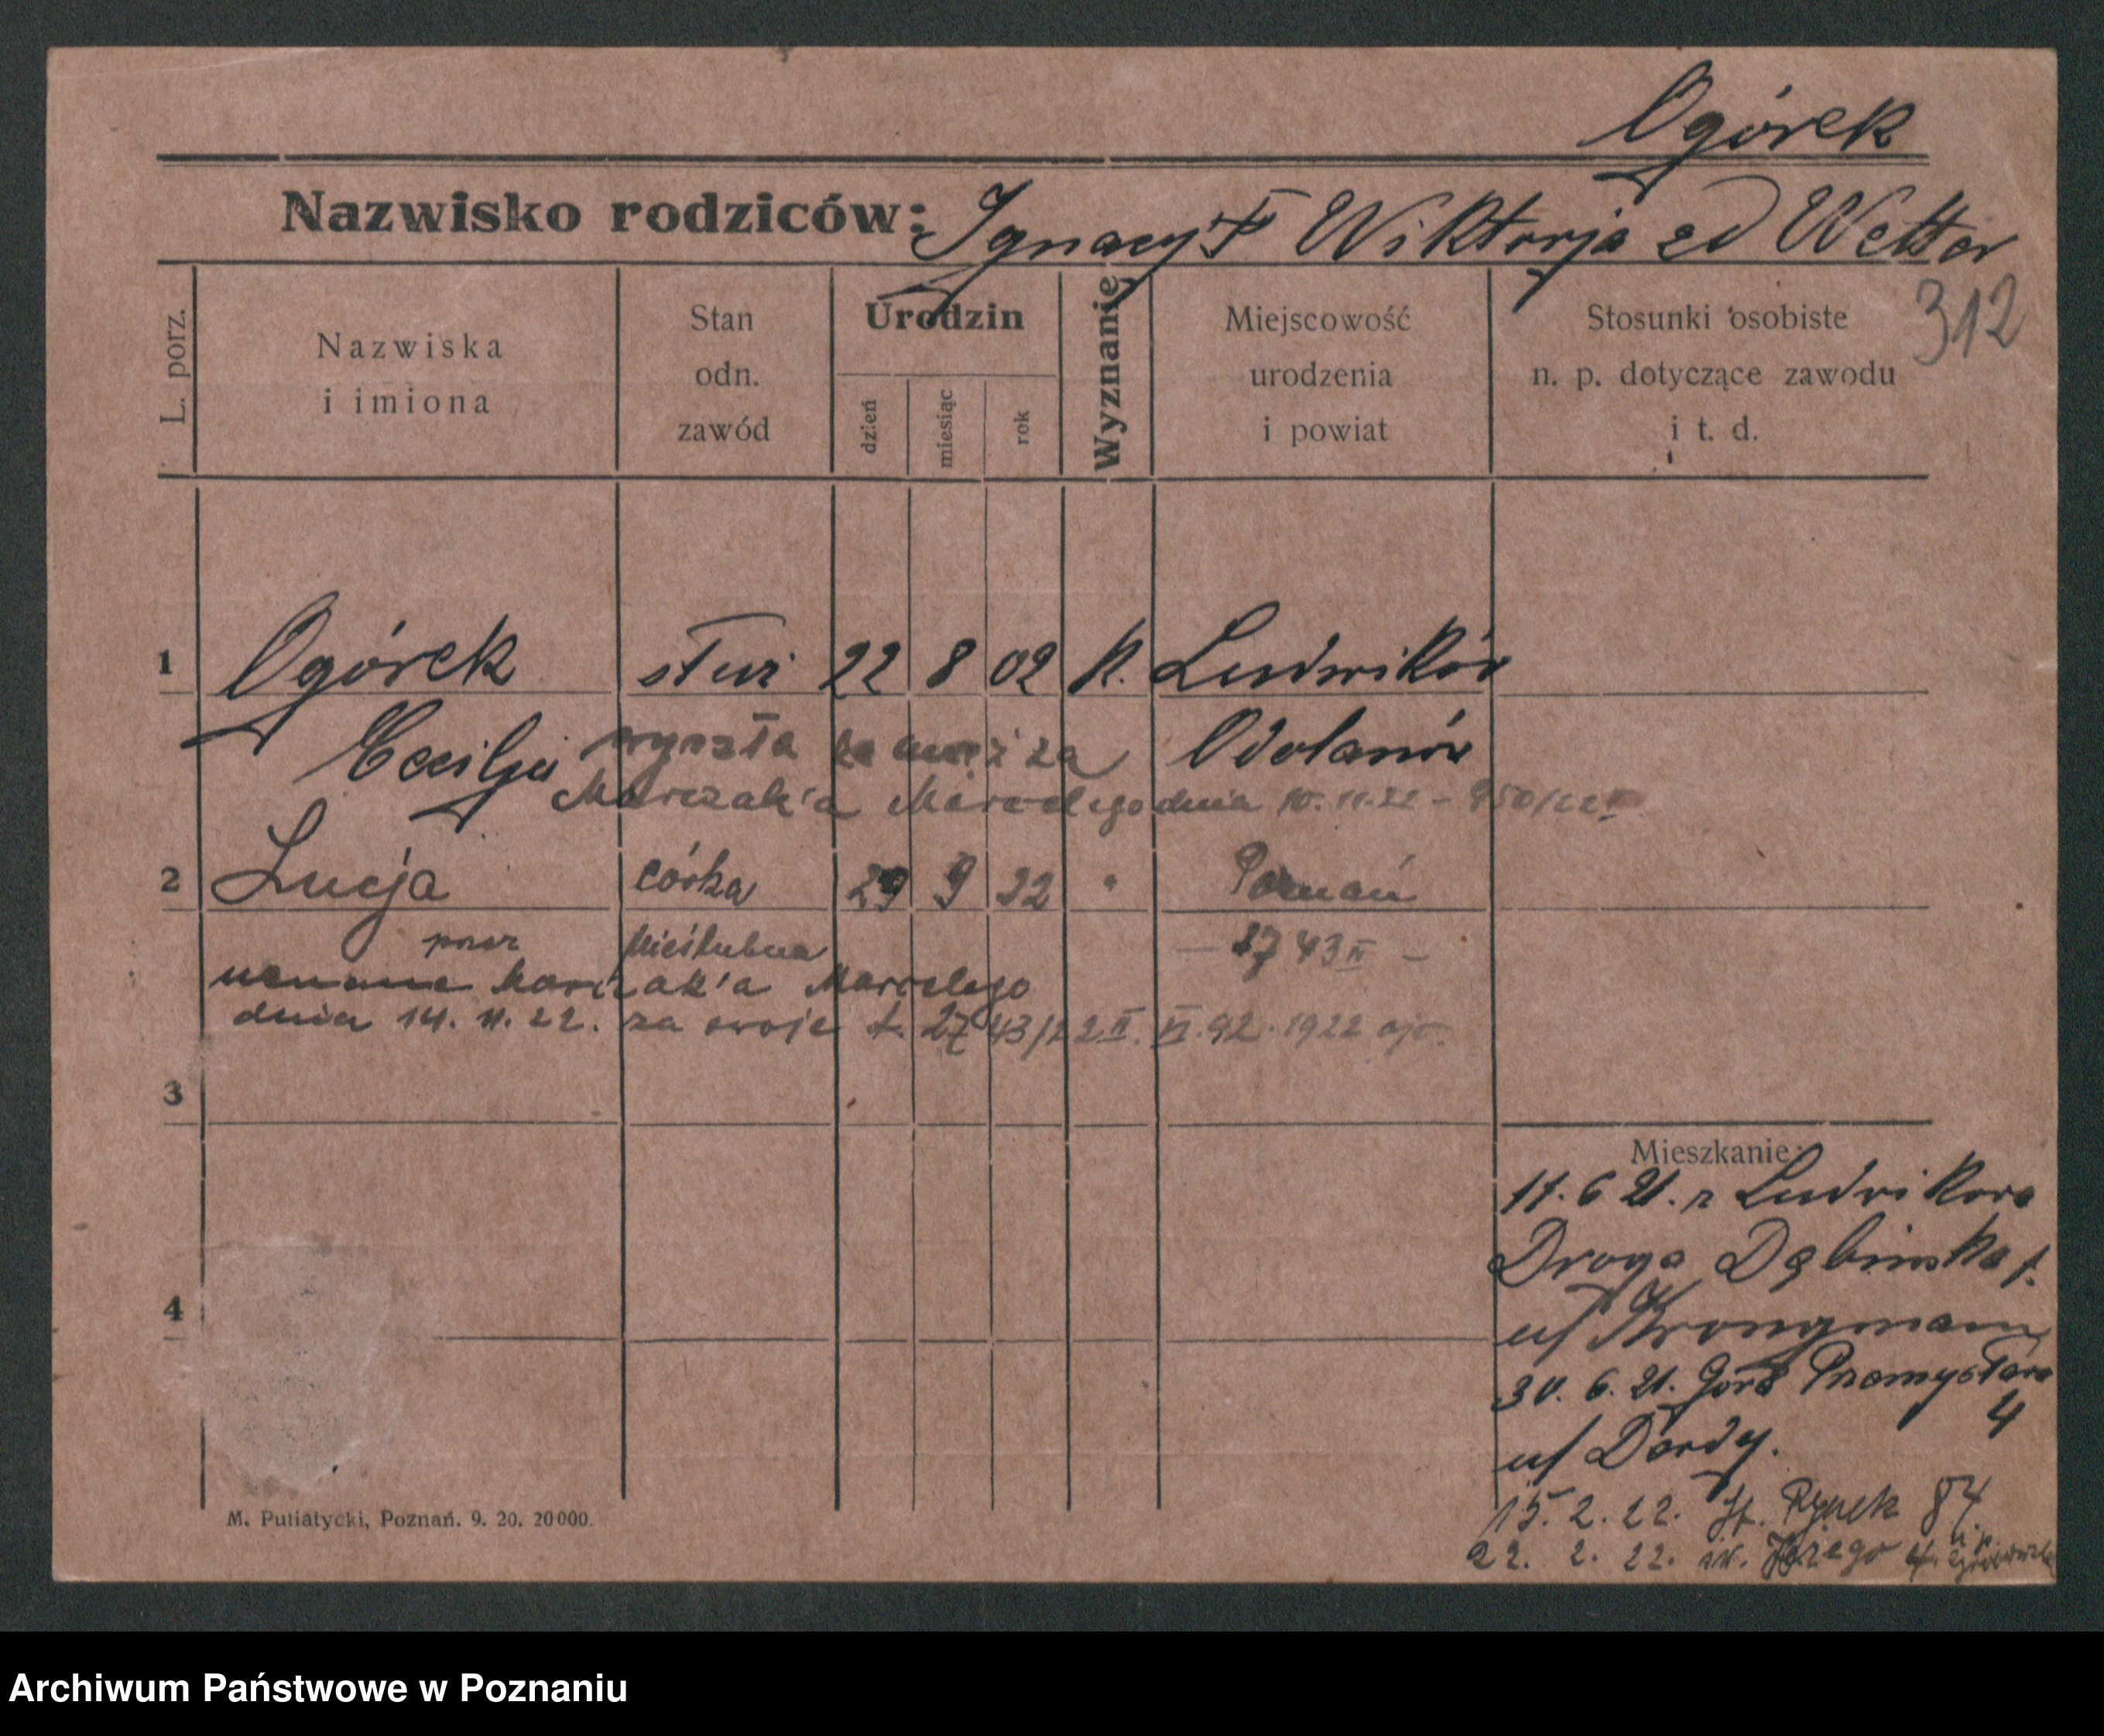 Ogórek
Nazwisko rodziców: Ignacy Wiktorja zd Wetter
312
L. porz.
Nazwiska
i imiona
Stan
odn.
zawód
Urodzin
dzień
miesiąc
rok
Wyznanie
Miejscowość
urodzenia
i powiat
Stosunki osobiste
n. p. dotyczące zawodu
i t. d.
1 Ogórek służ 22 8 02 k. Ludwików
Cecilja wyszła za mąż za Odolanów
Marczak'a Marcelego dnia 10.11.22 - 950/22
2 Lucja córka 29 9 22 " Poznań
przez nieślubna - 2743 II -
uznana Marczak'a Marcelego
dnia 14. 11. 22. za swoje t. 2743/22 II. VI. 92. 1922
3
Mieszkanie:
11. 6 21. z Ludwikowa
Droga Dębińska 1.
u/
30. 6. 21. Góra Przemysława
4
u/ Dardy.
15. 2. 22. St. Rynek 84
22. 2. 22. św. Jerzego 4.
4
M. Putiatycki, Poznań. 9. 20. 20000.
Archiwum Państwowe w Poznaniu